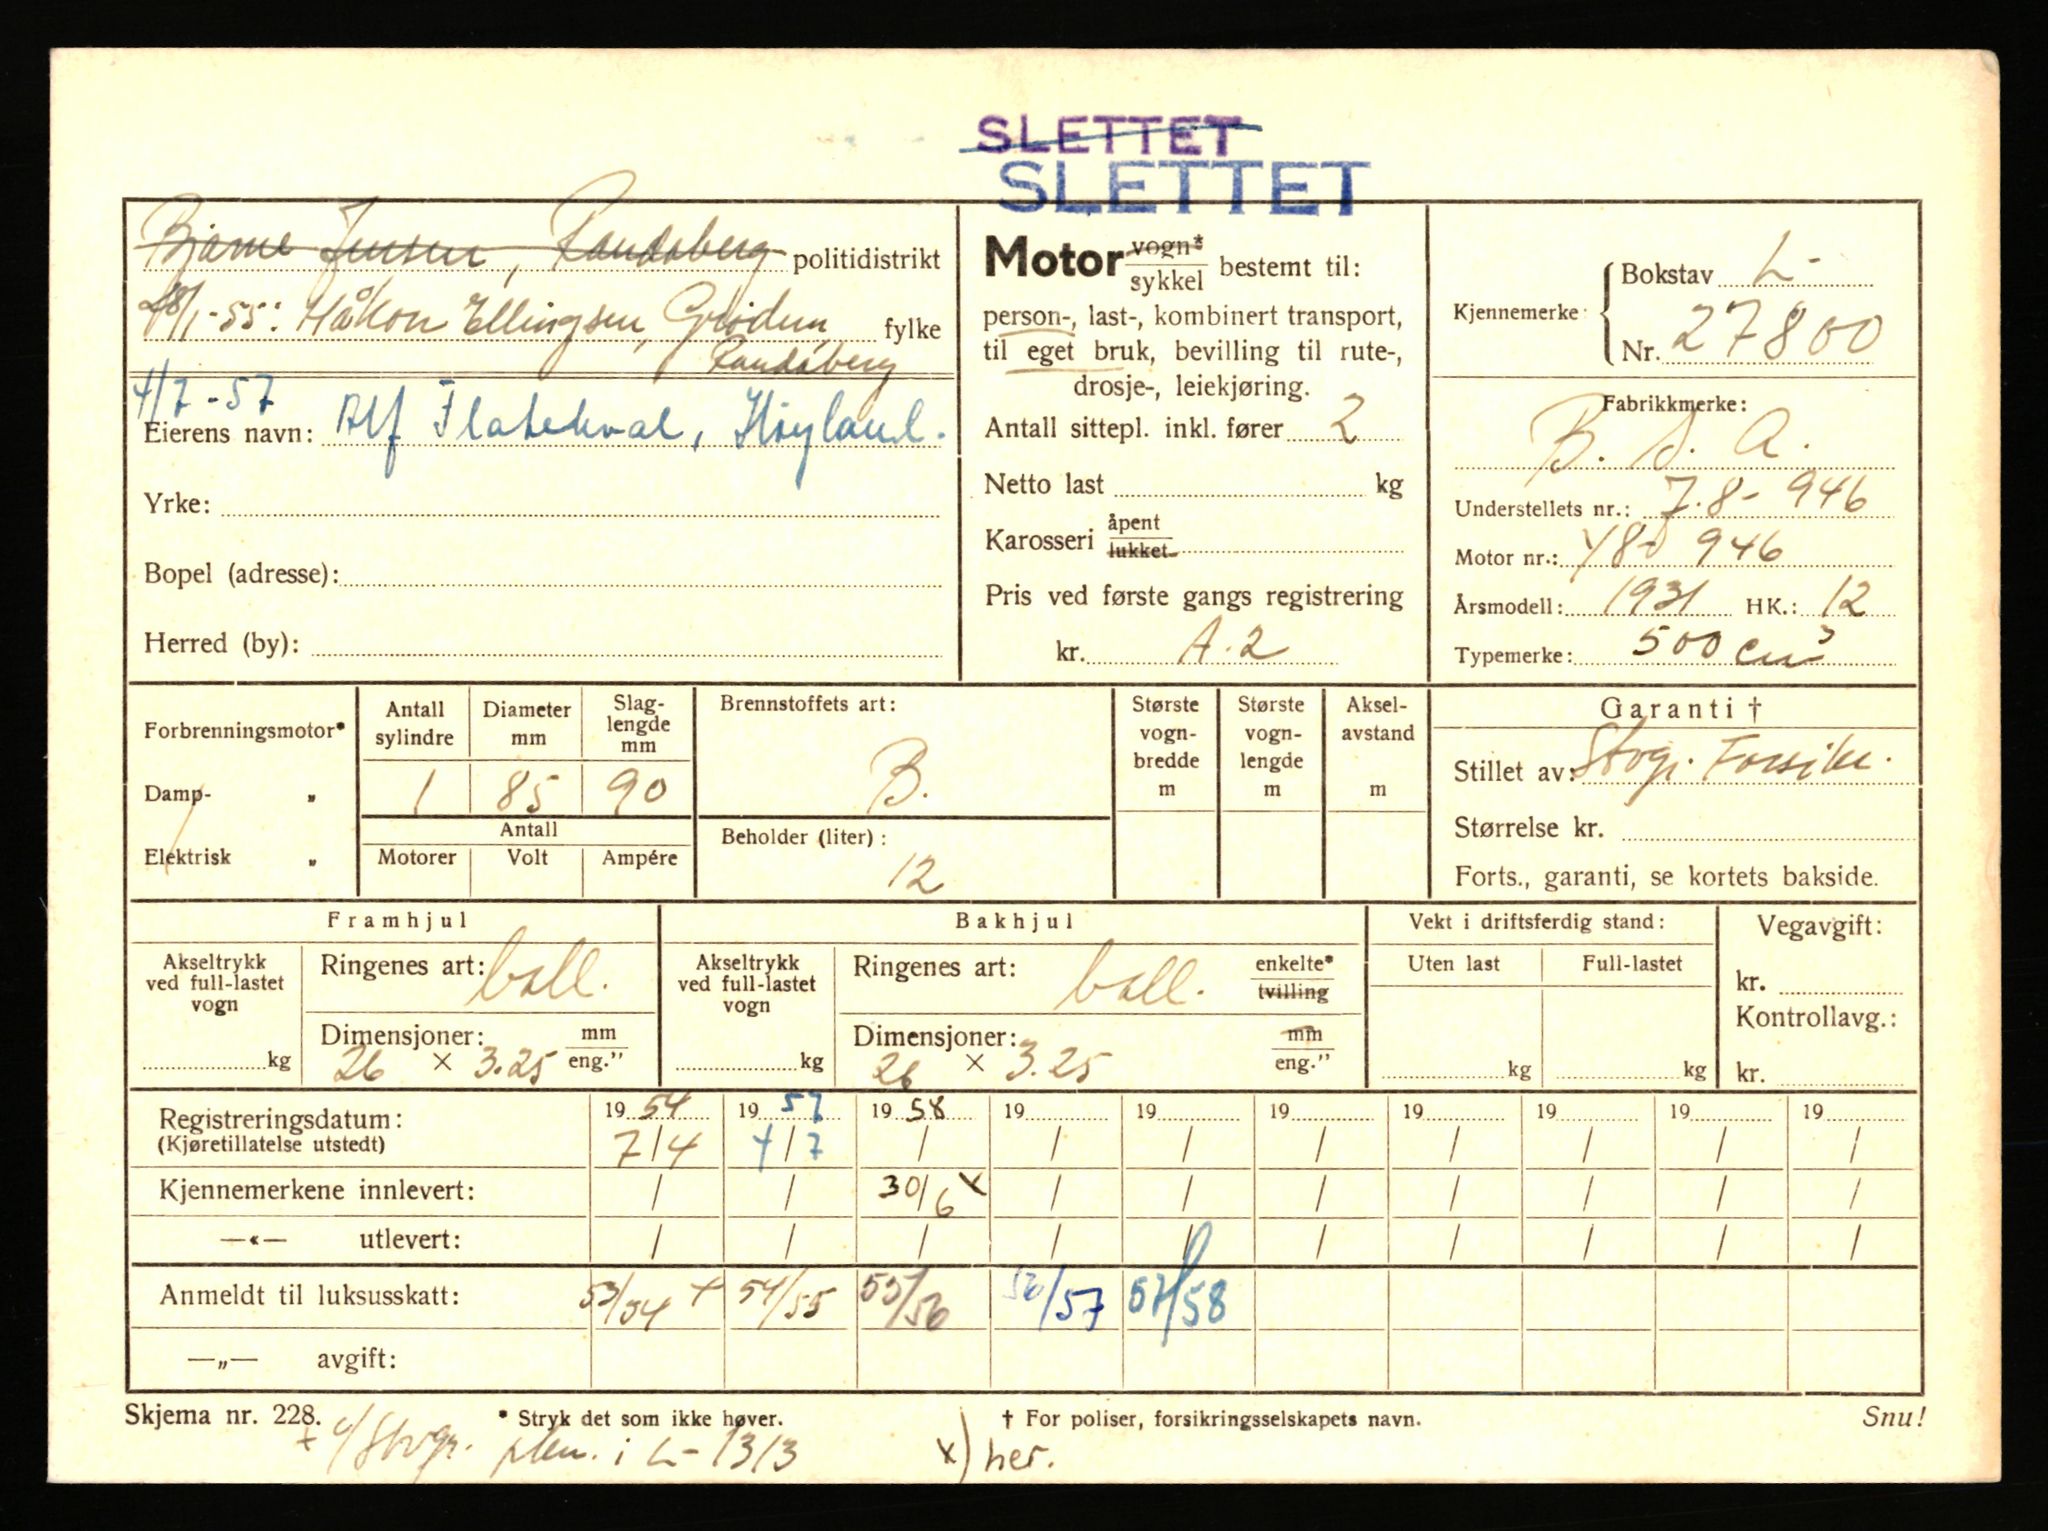 SLETTET
SLETTET
Bjarne Jensen, Randaberg politidistrikt
28/1-55: Håkon Ellingsen, Grødem, fylke
Randaberg
4/7-57
Eierens navn: Alf Flatekval, Høyland.
Yrke:
Bopel (adresse):
Herred (by):
Motor vogn* / sykkel bestemt til:
person-, last-, kombinert transport,
til eget bruk, bevilling til rute-,
drosje-, leiekjøring.
Antall sittepl. inkl. fører 2
Netto last kg
Karosseri åpent / lukket
Pris ved første gangs registrering
kr. A.2
Kjennemerke: Bokstav L-
Nr. 27800
Fabrikkmerke:
B. S. A.
Understellets nr.: 7.8- 946
Motor nr.: 946
Årsmodell: 1931 HK.: 12
Typemerke: 500 cm³
Forbrenningsmotor*
Damp- „
Elektrisk „
Antall sylindre Diameter mm Slaglengde mm
1 85 90
Antall
Motorer Volt Ampére
Brennstoffets art:
B.
Beholder (liter):
12
Største vogn-bredde m
Største vogn-lengde m
Aksel-avstand m
Garanti †
Stillet av: Stvgr. Forsikr.
Størrelse kr.
Forts., garanti, se kortets bakside.
Framhjul
Akseltrykk ved full-lastet vogn kg
Ringenes art: ball.
Dimensjoner: mm / eng."
26 × 3.25
Bakhjul
Akseltrykk ved full-lastet vogn kg
Ringenes art: ball. enkelte* / tvilling
Dimensjoner: mm / eng."
26 × 3.25
Vekt i driftsferdig stand:
Uten last Full-lastet
kg kg
Vegavgift:
kr.
Kontrollavg.:
kr.
Registreringsdatum: 19 54 19 57 19 58 19 19 19 19 19 19 19
(Kjøretillatelse utstedt) 7/4 4/7 / / / / / / / /
Kjennemerkene innlevert: / / 30/6 x / / / / / / /
—«— utlevert: / / / / / / / / / /
Anmeldt til luksusskatt: 53/54 + 54/55 55/56 56/57 57/58
—„— avgift:
Skjema nr. 228. * Stryk det som ikke høver. † For poliser, forsikringsselskapets navn. Snu!
+ Stvgr. i L- 1313 x) her.